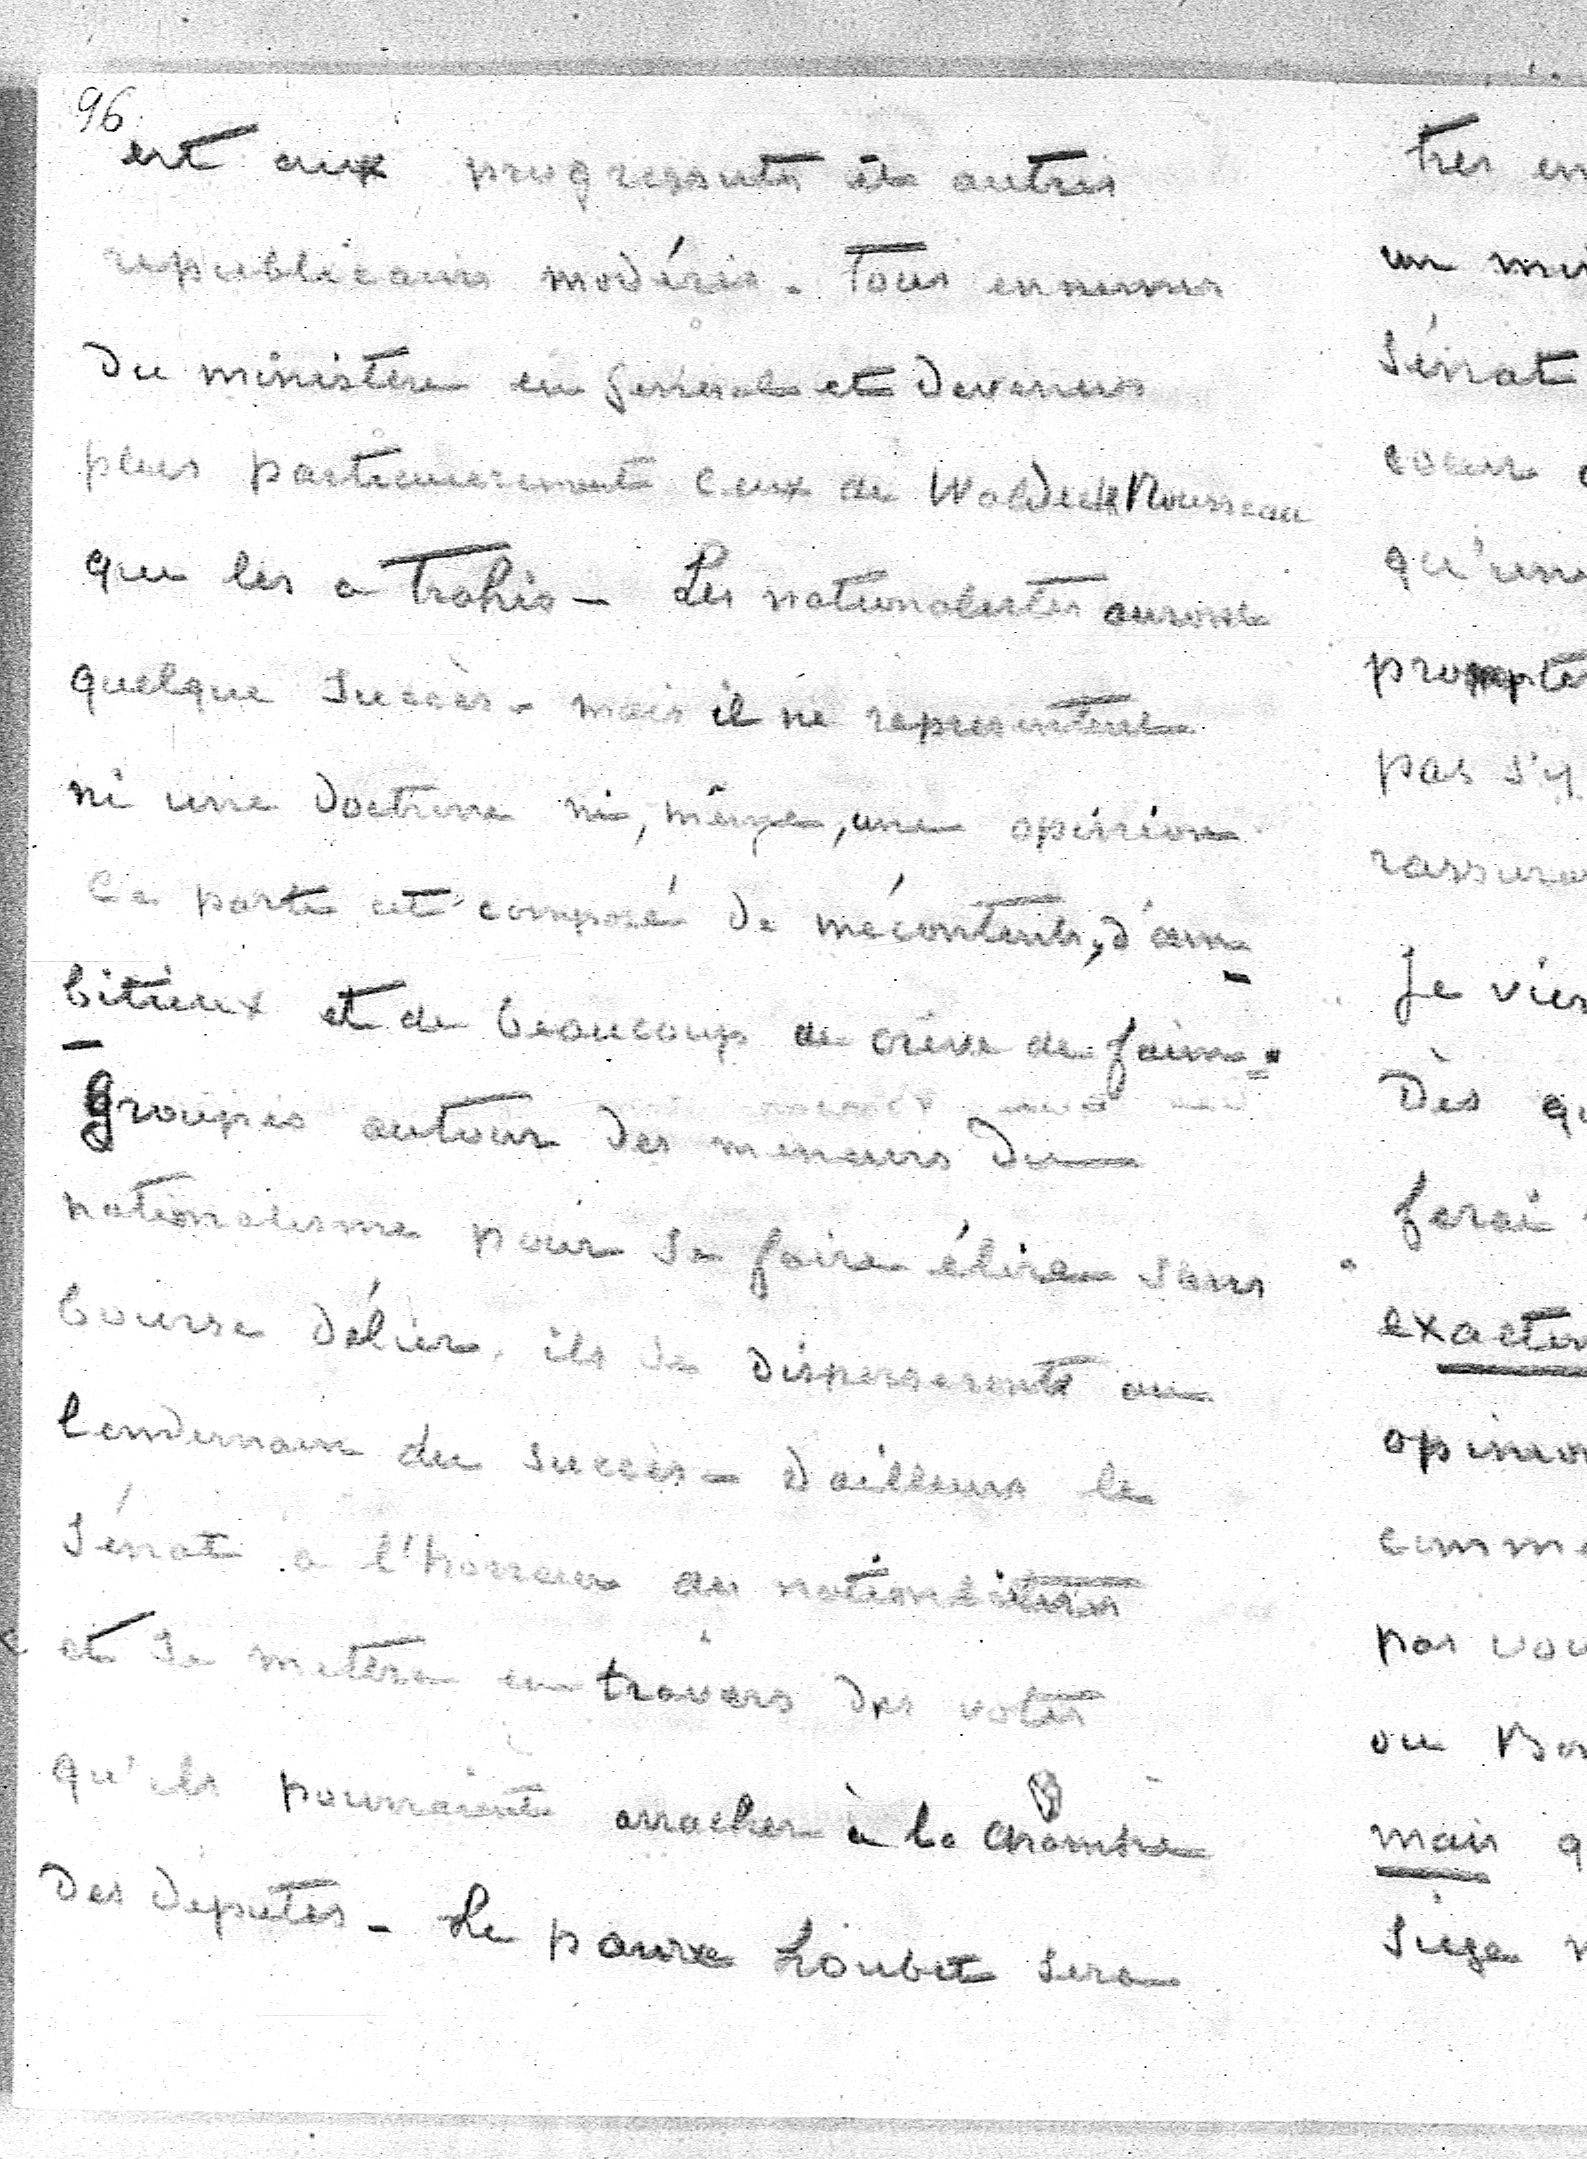 96
est aux progressistes et autres
republicains modérés. Tous ennemis
du ministère en general et devenus
plus particulierement ceux de Waldeck Rousseau
que les a trahis - Les nationalistes auront
quelque succès - mais il ne representent
ni une doctrine ni, même, une opinion
Ce parti est composé de mécontents, d'am-
bitieux et de beaucoup de crève de faim.
Groupés autour des meneurs du
nationalisme pour se faire élire sans
bourse délier, ils se disperseront au
lendemain du succès - d'ailleurs le
Sénat a l'horreur des
et se mettra en travers des votes
qu'ils pourraient arracher à la chambre
des députés - Le pauvre Loubet sera
très en
un min
Sénat
coeur
qu'une
prompte
pas s'y
rassurer
Je vien
Dès qu
ferai
exactem
opinion
comme
pas vou
ou Bon
mais q
siège n